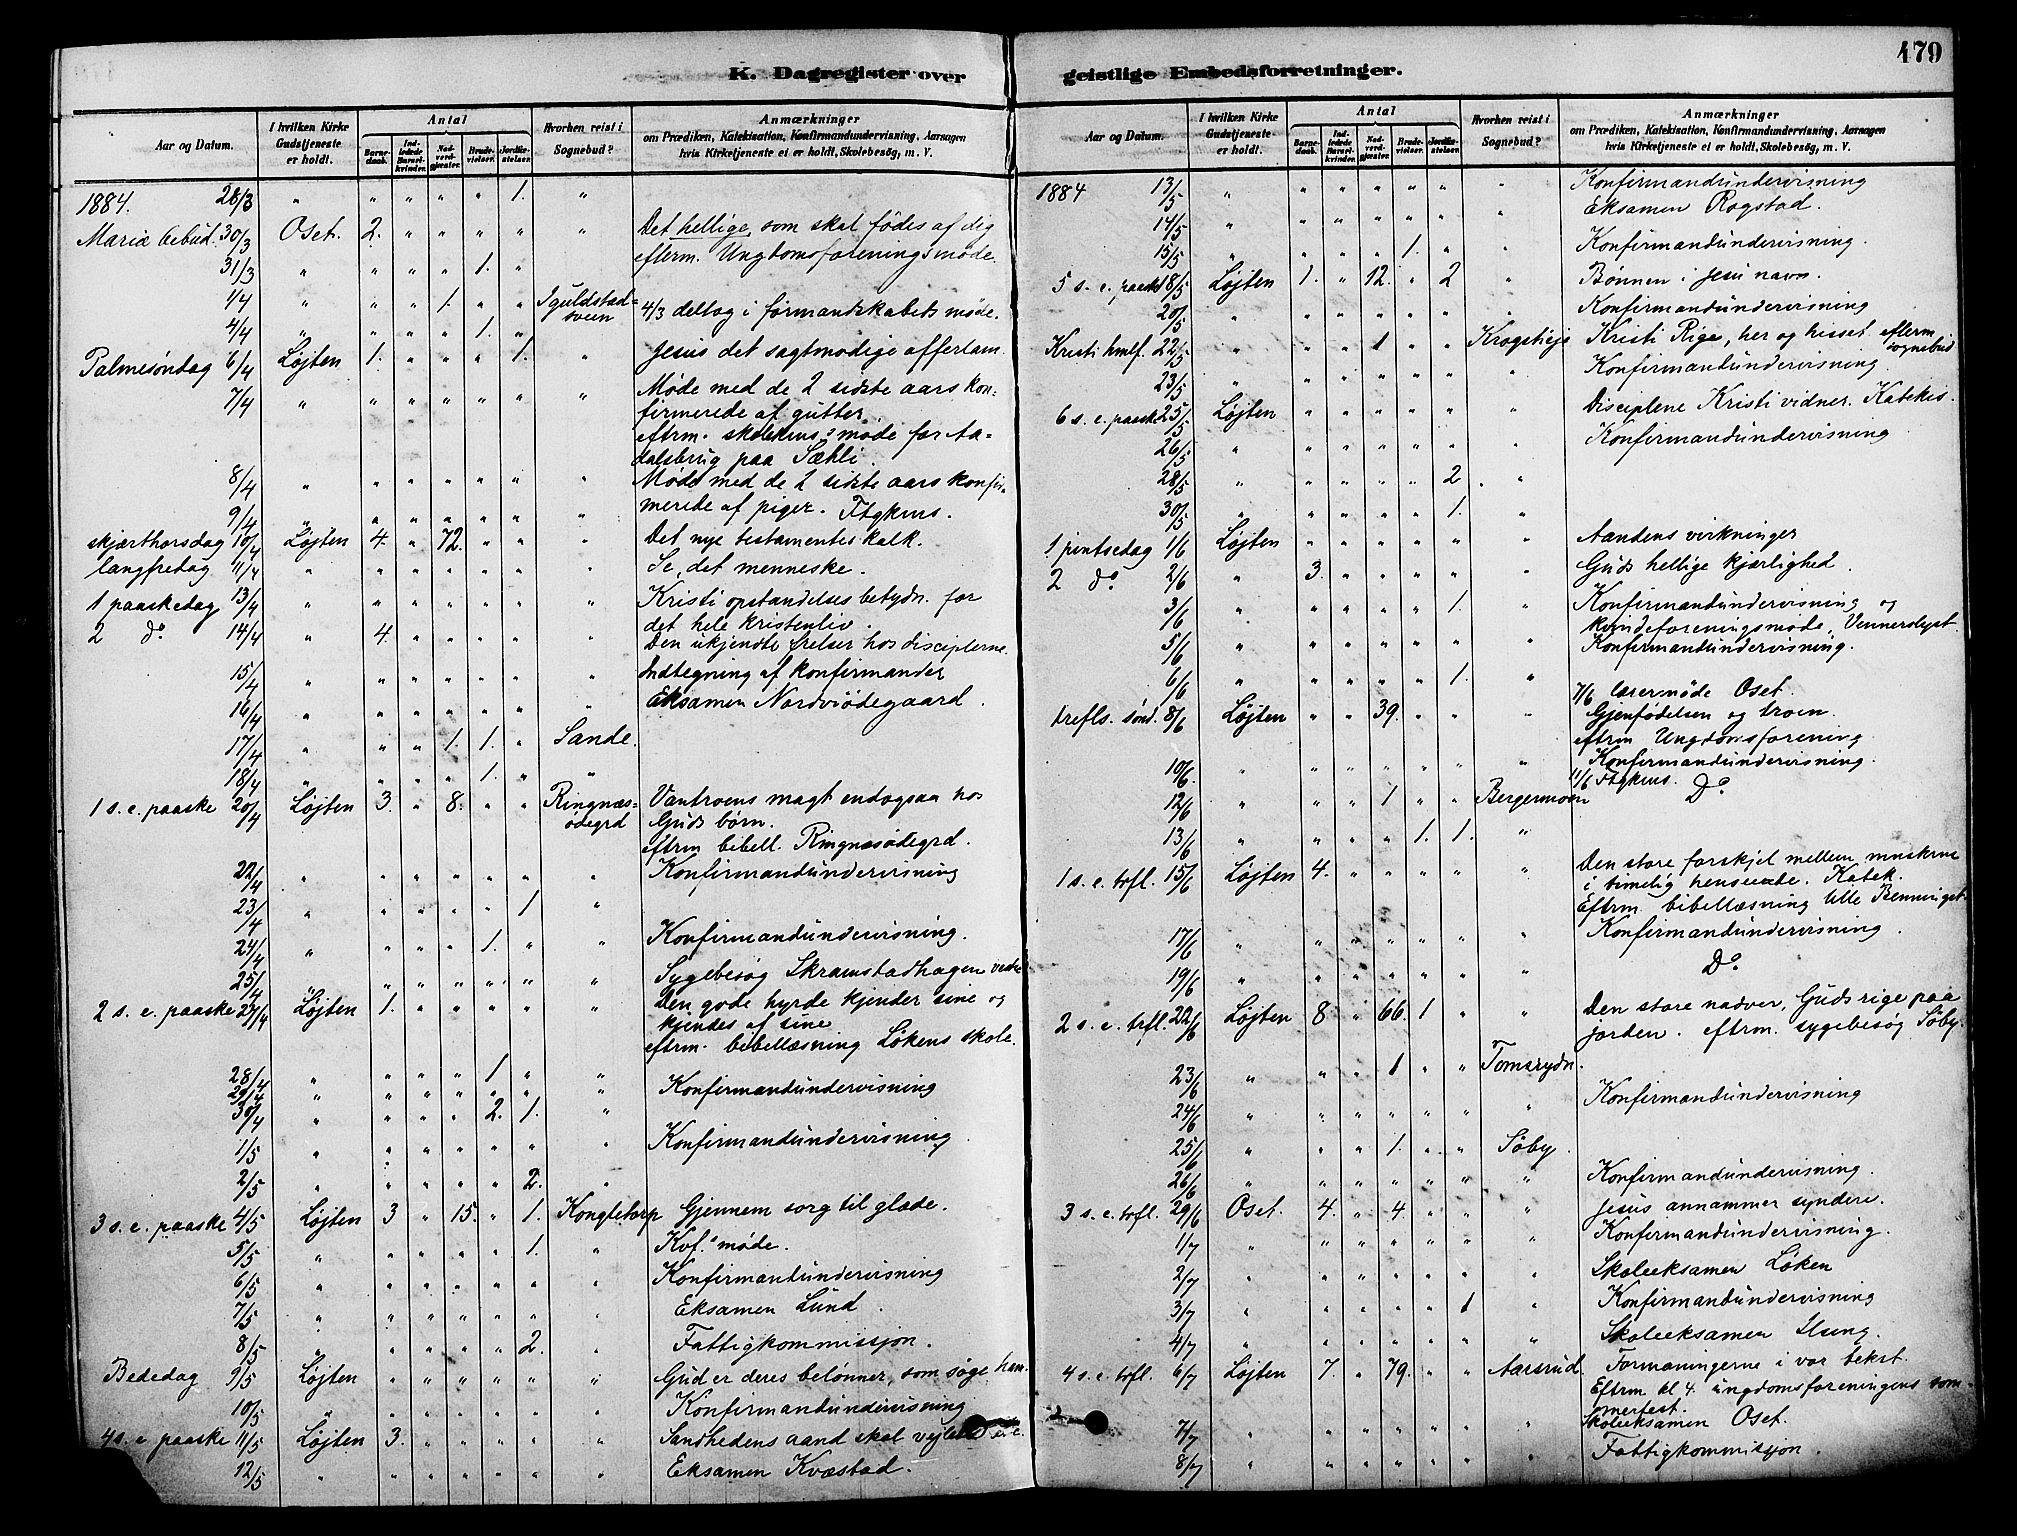 179
K. Dagregister over geistlige Embedsforretninger.
Aar og Datum.
I hvilken Kirke Gudstjeneste er holdt.
Antal
Barnedaab.
Indledede Barselkvinder.
Nadverdgjester.
Brudevielser.
Jordfæstelser.
Hvorhen reist i Sognebud?
Anmærkninger
om Prædiken, Katekisation, Konfirmandundervisning, Aarsagen
hvis Kirketjeneste ei er holdt, Skolebesög, m. V.
1884. 28/3 " " " " " 1. "
Mariæ bebud. 30/3 Oset. 2. " " " " " Det hellige, som skal fødes af dig
efterm. Ungdomsforeningsmøde.
31/3 " " " " 1. "
1/4 " " " 1. " "
4/4 " " " " 1. " 4/3 deltog i formandskabets møde.
Palmesøndag 6/4 Løjten 1. " " " 1. Jesus det sagtmodige offerlam
7/4 " " " " " " " Møde med de 2 sidste aars kon=
firmerede af gutter.
eftrm. møde for Aa=
dalsbrug paa Sæhli.
8/4 " " " " " " " Møde med de 2 sidste aars konfir=
merede af piger. Ftgkms.
9/4 " " " " " " "
skjærthorsdag 10/4 Løjten 4. " 72. " " " Det nye testamentes kalk.
langfredag 11/4 " " " " " " " Se, det menneske.
1 paaskedag 13/4 " " " " " " " Kristi opstandelses betydn. for
det hele kristenliv.
2 do 14/4 " 4. " " " " " Den ukjendte frelser hos disciplerne.
15/4 " " " " " " " Indtegning af konfirmander
16/4 " " " " " " Eksamen Nordviødegaard.
17/4 " " " 1. 1. " Sande.
18/4 " " " " 1. " "
1 s. e. paaske 20/4 Løjten 3. " 8. " " Ringnæs=ødegrd Vantroens magt endogsaa hos
Guds børn.
eftrm bibell. Ringnæsødegrd.
22/4 " " " " " " " Konfirmandundervisning
23/4 " " " " " 1 "
24/4 " " " " 1. " " Konfirmandundervisning.
25/4 " " " " " " " Sygebesøg Skramstadhagen vestre
2 s. e. paaske 27/4 Løjten 1. " " " " " Den gode hyrde kjender sine og
kjendes af sine
eftrm. bibellæsning Løkens skole.
28/4 " " " " 1 " "
29/4 " " " " " " Konfirmandundervisning
30/4 " " " " 2. 1. "
1/5 " " " " " " " Konfirmandundervisning
2/5 " " " " " 2. "
3 s. e. paaske 4/5 Løjten 3 " 15. " 1. Kongletorp Gjennem sorg til glæde.
5/5 " " " " " 1. " Kvf. møde.
6/5 " " " " " " " Konfirmandundervisning
7/5 " " " " " " " Eksamen Lund.
8/5 " " " " " 2. " Fattigkommissjon.
Bededag 9/5 Løjten " " " " " " Gud er deres belønner, som søge ham.
10/5 " " " " " " " Konfirmandundervisning
4 s. e paaske 11/5 Løjten 3. " " " " " Sandhedens aand skal vejlede
12/5 " " " " " " " Eksamen Kvæstad.
Aar og Datum.
I hvilken Kirke Gudstjeneste er holdt.
Antal
Barnedaab.
Indledede Barselkvinder.
Nadverdgjester.
Brudevielser.
Jordfæstelser.
Hvorhen reist i Sognebud?
Anmærkninger
om Prædiken, Katekisation, Konfirmandundervisning, Aarsagen
hvis Kirketjeneste ei er holdt, Skolebesög, m. V.
1884 13/5 " " " " " " " Konfirmandundervisning
14/5 " " " " " " " Eksamen Rogstad.
15/5 " " " " 1. " " Konfirmandundervisning.
5 s. e. paaske 18/5 Løjten 1. " 12. " 2 " Bønnen i Jesu navn.
20/5 " " " " " " " Konfirmandundervisning
Kristi hmlf. 22/5 " " " 1 " " Kristi Rige, her og hisset efterm sognebud
23/5 " " " " " " " Konfirmandundervisning.
6 s. e. paaske 25/5 Løjten " " " " " " Disciplene Kristi vidner. Katekis.
26/5 " " " " " " " Konfirmandundervisning
28/5 " " " " " 2 "
30/5 " " " " " 1. "
1 pintsedag 1/6 Løjten " " " " " " Aandens virkninger
2 do 2/6 " 3. " " " " " Guds hellige kjærlighed.
3/6 " " " " " 1. " Konfirmandundervisning og
kvindeforeningsmøde, Vennerslyst.
5/6 " " " " " " " Konfirmandundervisning.
6/6 " " " " " 1. " 7/6 lærermøde Oset.
trefls. sønd. 8/6 Løjten " " 39. " " " Gjenfødelsen og troen.
eftrm Ungdomsforening
10/6 " " " " " " " Konfirmandundervisning.
11/6 Ftgkms. Do
12/6 " " " 1 " " Bergermoen
13/6 " " " " 1. 1. "
1 s. e. trfl. 15/6 Løjten 4. " " " " " Den store forskjel mellem mnskrne
i timelig henseende. Katek.
Eftrm. bibellæsning lille Benninget.
17/6 " " " " " " " Konfirmandundervisning.
19/6 " " " " " " " Do
2 s. e. trfl. 22/6 Løjten 8. " 66. 1 " " Den store nadver, Guds rige paa
jorden. eftrm. sygebesøg Søby.
23/6 " " " 1 " " Tomsrydn.
24/6 " " " " " " " Konfirmandundervisning
25/6 " " " 1. " " Søby.
26/6 " " " " " " " Konfirmandundervisning.
3 s. e. trfl. 29/6 Oset. 4. " 4. " " " Jesus annammer syndere.
1/7 " " " " " " " Konfirmandundervisning.
2/7 " " " " " " " Skoleeksamen Løken
3/7 " " " " " 1 " Konfirmandundervisning
4/7 " " " " " " " Skoleeksamen Ilseng.
4 s. e. trfl. 6/7 Løjten 7. " 79. " " Aarsrud. Formaningerne i vor tekst.
Eftrm kl 4. ungdomsforeningens som=
merfest.
7/7 " " " " " " " Skoleeksamen Oset.
8/7 " " " " " " " Fattigkommissjon.